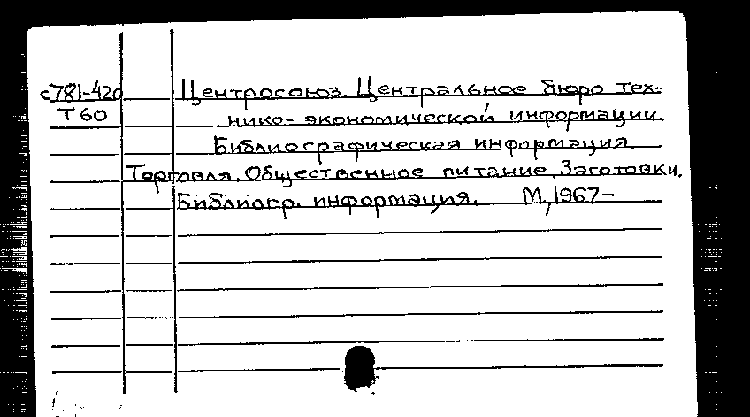 с781-420 Центросоюз. Центральное бюро тех-
Т60 нико-экономической информации.
Библиографическая информация.
Торговля. Общественное питание. Заготовки.
Библиогр. информация. М., 1967-